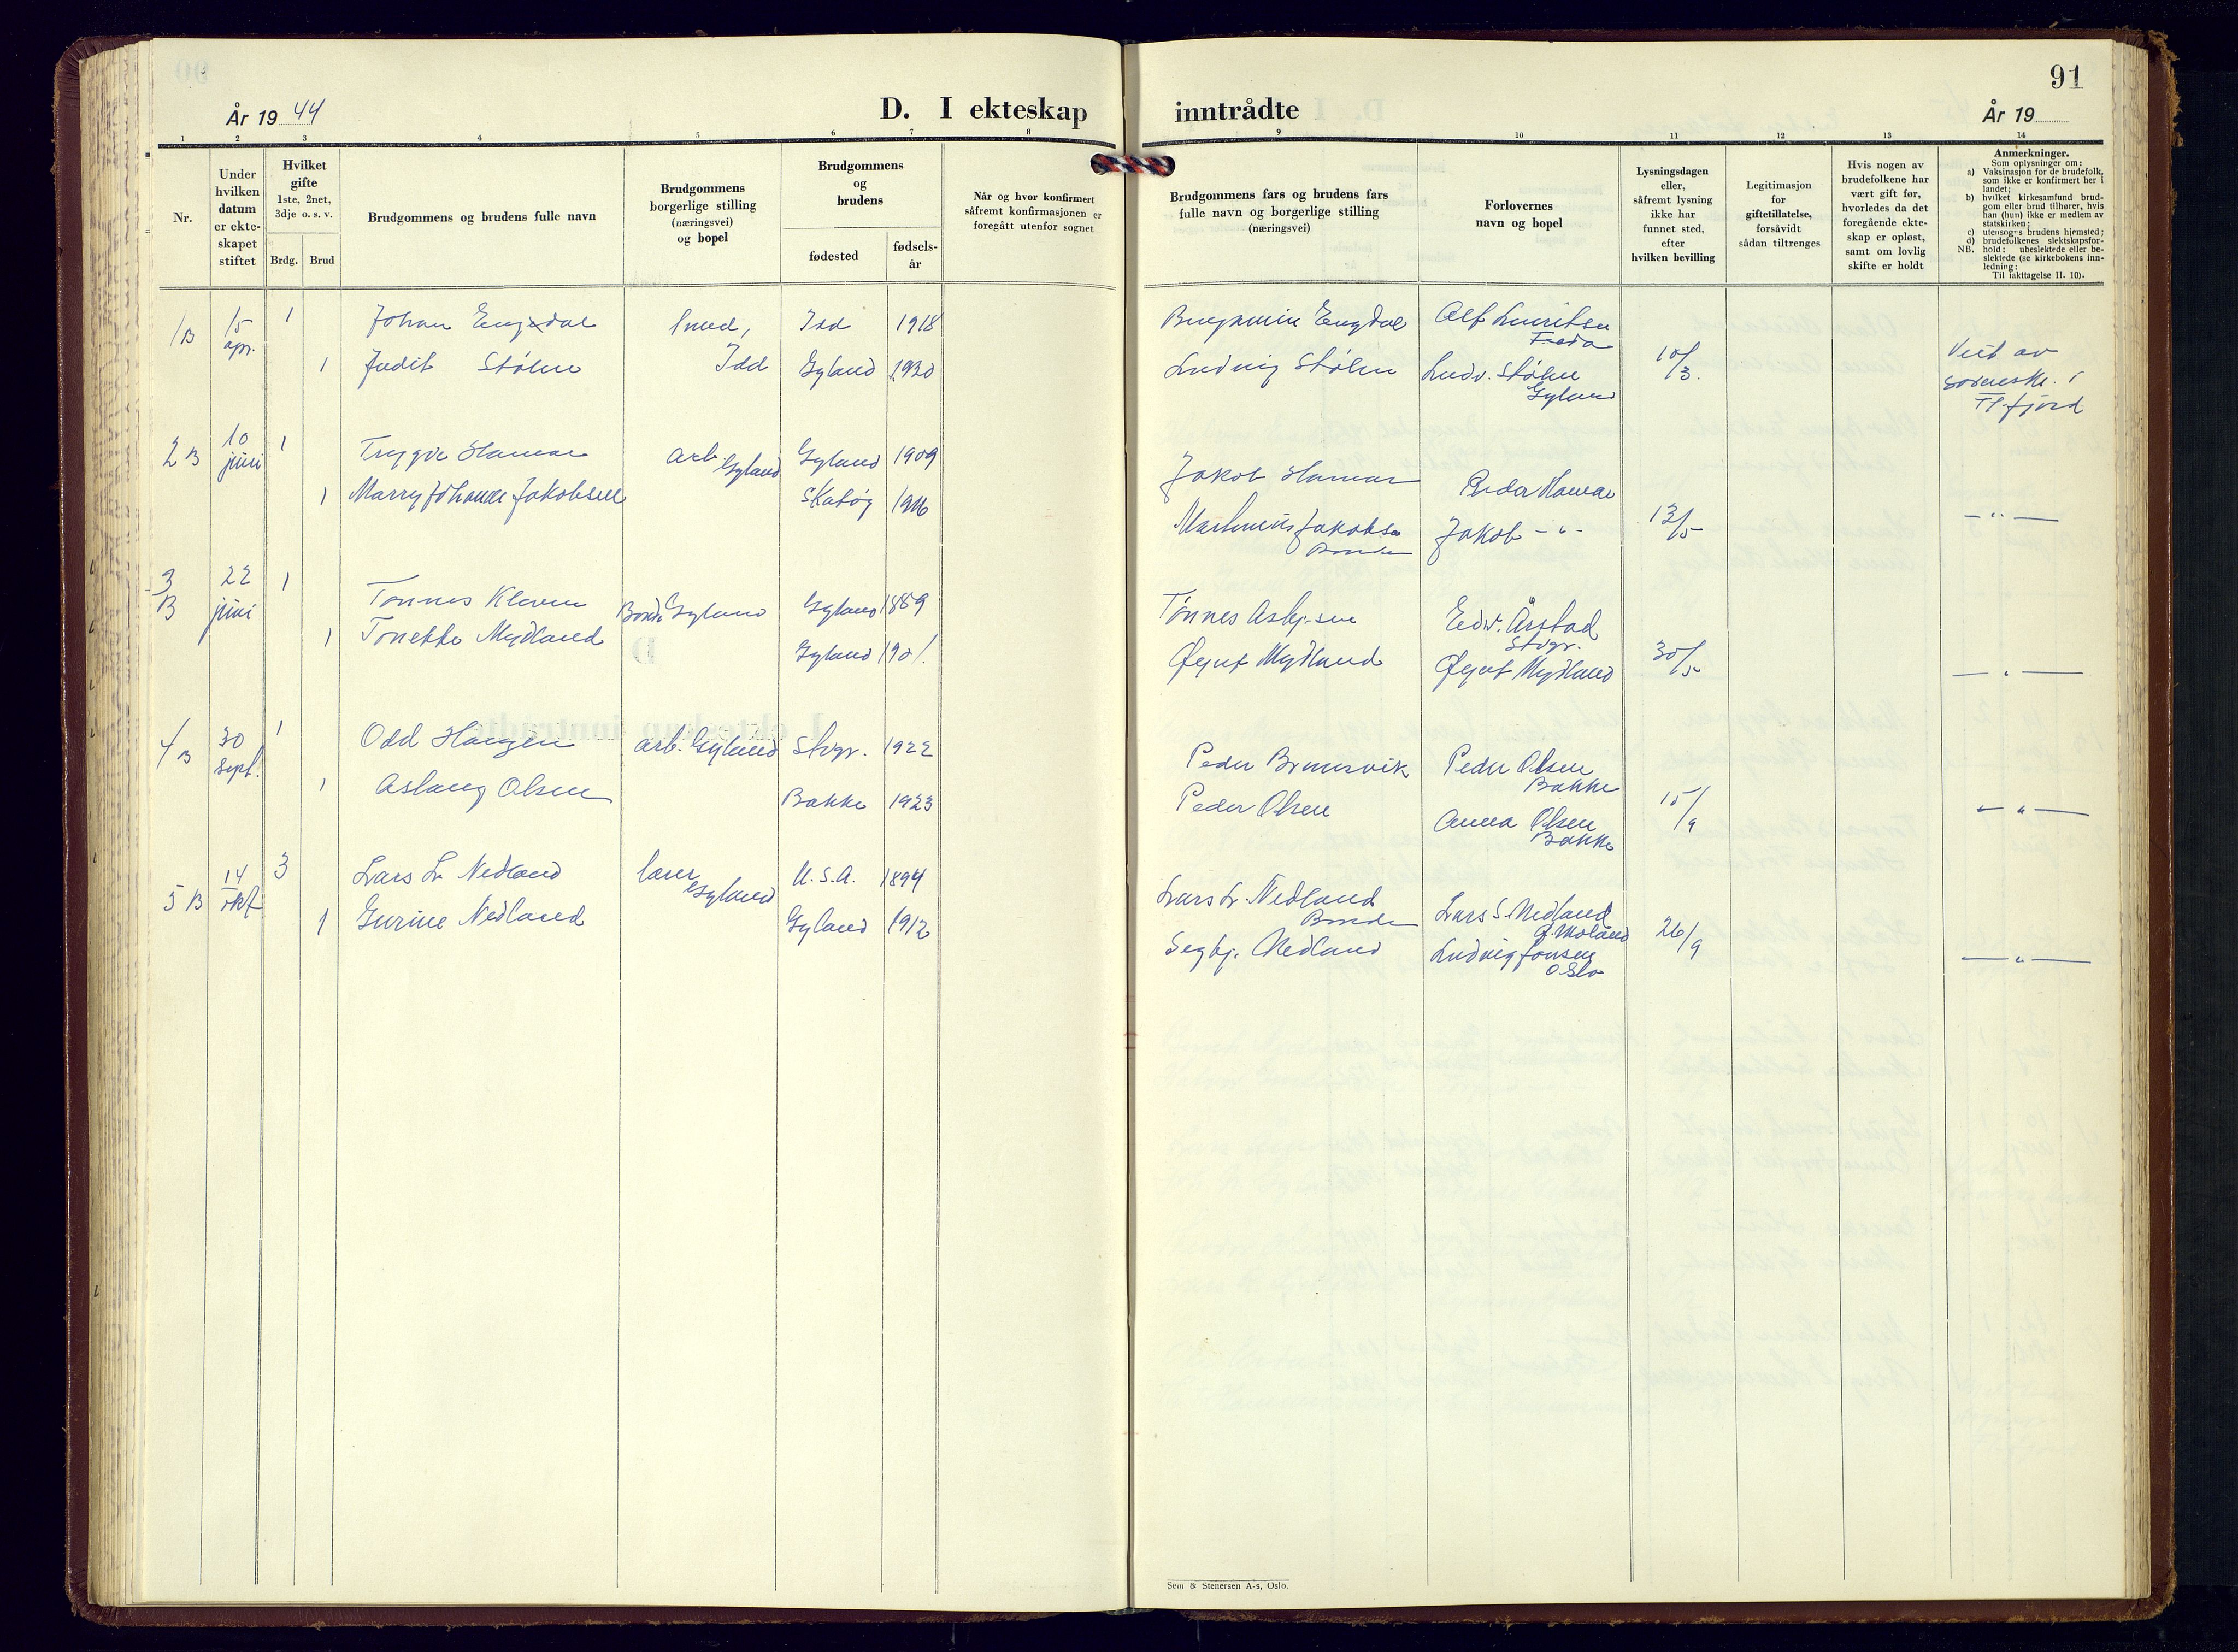 91
År 19 44
D. I ekteskap inntrådte
År 19
1 2 3 4 5 6 7 8 9 10 11 12 13 14
Nr.
Under
hvilken
datum
er ekte-
skapet
stiftet
Hvilket
gifte
1ste, 2net,
3dje o. s. v.
Brdg. Brud
Brudgommens og brudens fulle navn
Brudgommens
borgerlige stilling
(næringsvei)
og bopel
Brudgommens
og
brudens
fødested
fødsels-
år
Når og hvor konfirmert
såfremt konfirmasjonen er
foregått utenfor sognet
Brudgommens fars og brudens fars
fulle navn og borgerlige stilling
(næringsvei)
Forlovernes
navn og bopel
Lysningsdagen
eller,
såfremt lysning
ikke har
funnet sted,
efter
hvilken bevilling
Legitimasjon
for
giftetillatelse,
forsåvidt
sådan tiltrenges
Hvis nogen av
brudefolkene har
vært gift før,
hvorledes da det
foregående ekte-
skap er opløst,
samt om lovlig
skifte er holdt
Anmerkninger.
Som oplysninger om:
a) Vaksinasjon for de brudefolk,
som ikke er konfirmert her i
landet;
b) hvilket kirkesamfund brud-
gom eller brud tilhører, hvis
han (hun) ikke er medlem av
statskirken;
c) utensogns brudens hjemsted;
d) brudefolkenes slektskapsfor-
NB. hold: ubeslektede eller be-
slektede (se kirkebokens inn-
ledning:
Til iakttagelse II. 10).
1 B 15 apr. 1 Johan Engdal smed, Idd 1918 Benjamin Engdal Alf Lauritsen
1 Judit Stølen Idd Gyland 1920 Ludvig Stølen Ludv. Stølen Gyland 10/3.
Viet av
sorenskr. i
Fl.fjord
2 B 10 juni 1 Trygve Hamar arb. Gyland Gyland 1909 Jakob Hamar Peder Hamar
1 Marry Johanne Jakobsen Skatøy 1916 Martinius Jakobsen Bonde Jakob - " - 13/5 - " -
3 B 22 juni 1 Tønnes Kleven Bonde Gyland Gyland 1889 Tønnes Asbj.sen Edv. Årstad Stvgr.
1 Tonette Mydland Gyland 1901. Øynt Mydland Øynt Mydland 30/5 - " -
4 B 30 sept. 1 Odd Haugen arb. Gyland Stvgr. 1922 Peder Brunesvik Peder Olsen Bakke
1 Aslaug Olsen Bakke 1923 Peder Olsen Anna Olsen Bakke 15/9 - " -
5 B 14 okt 3 Lars L. Nedland lærer Gyland U.S.A. 1894 Lars L. Nedland Bonde Lars S. Nedland
1 Gurine Nedland Gyland 1912 Segbj. Nedland Ludvig Jonsen Oslo 26/9 - " -
Sem & Stenersen A-s, Oslo.